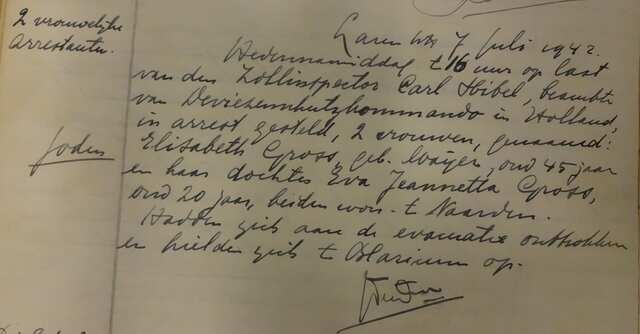 2 vrouwelijke
arrestanten.
Joden
Laren 7 Juli 1942.
Hedennamiddag t 16 uur op last
van den Zollinspector Carl Hibel, beambte
van Deviezenschutzkommando in Holland,
in arrest gesteld, 2 vrouwen, genaamd:
Elisabeth Gross, geb. oud 45 jaar
en haar dochter Eva Jeannetta Gross,
oud 20 jaar, beiden won. t Naarden.
Hadden zich aan de evacuatie onttrokken
en hielden zich t Blaricum op.